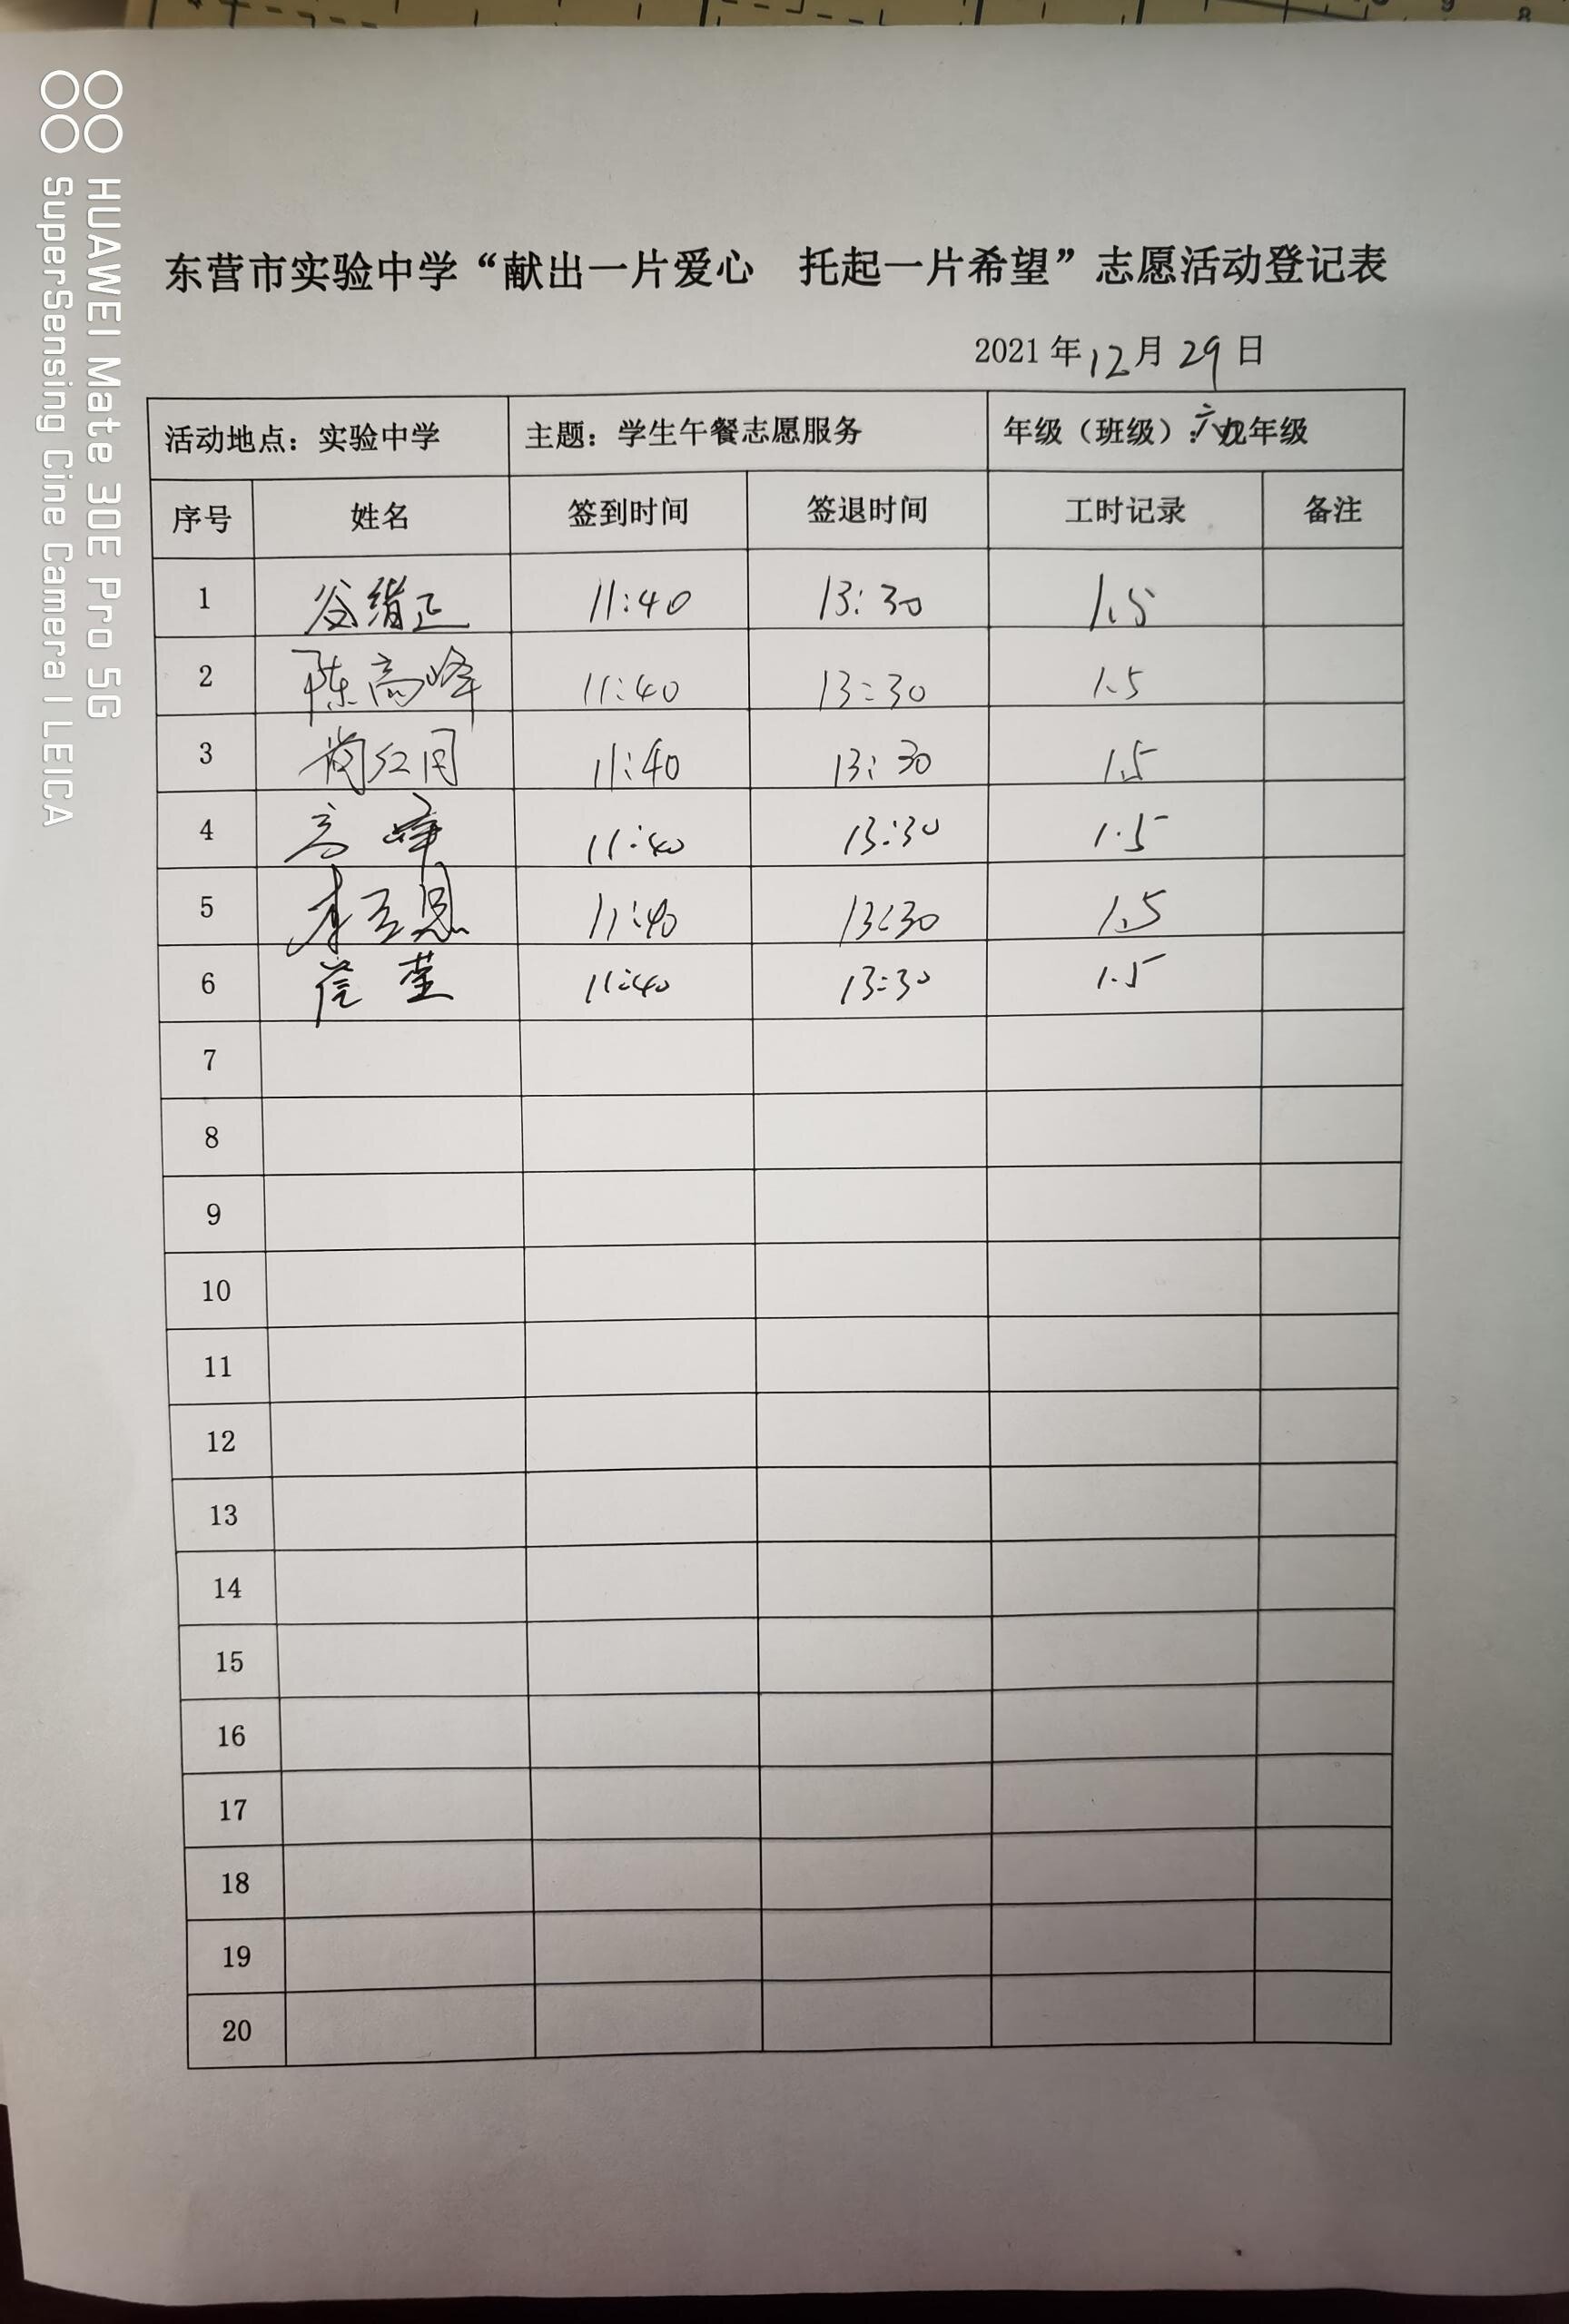 HUAWEI Mate 30E Pro 5G
SuperSensing Cine Camera | LEICA
东营市实验中学“献出一片爱心 托起一片希望”志愿活动登记表
2021 年 12 月 29 日
活动地点：实验中学 主题：学生午餐志愿服务 年级（班级）：六年级
序号 姓名 签到时间 签退时间 工时记录 备注
1 11:40 13:30 1.5
2 陈高峰 11:40 13:30 1.5
3 11:40 13:30 1.5
4 高峰 11:40 13:30 1.5
5 11:40 13:30 1.5
6 11:40 13:30 1.5
7
8
9
10
11
12
13
14
15
16
17
18
19
20